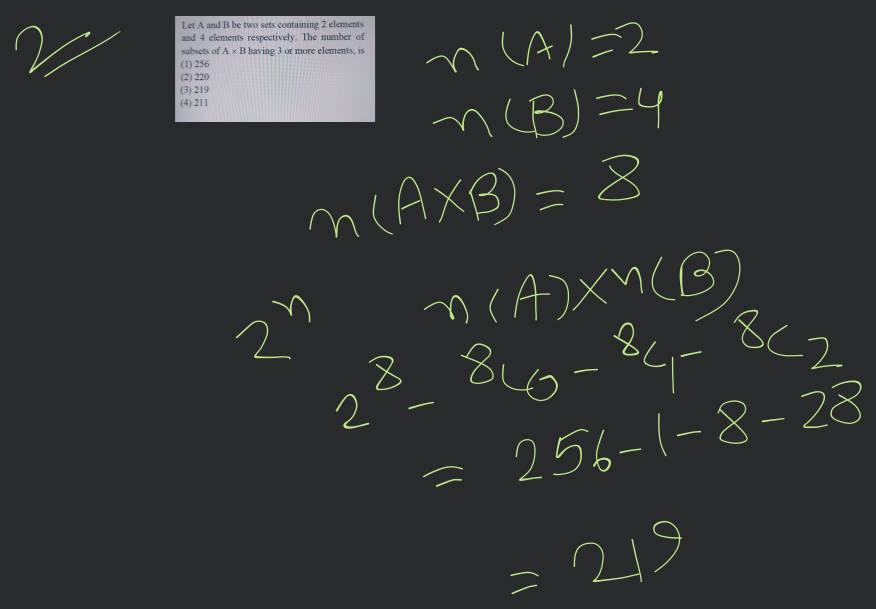 2
Let A and B be two sets containing 2 elements
and 4 elements respectively. The number of
subsets of A × B having 3 or more elements, is
(1) 256
(2) 220
(3) 219
(4) 211
n(A)=2
n(B)=4
n(A×B) = 8
n(A)×n(B)
2ⁿ
2⁸ - ⁸C₀ - ⁸C₁ - ⁸C₂
= 256-1-8-28
= 219